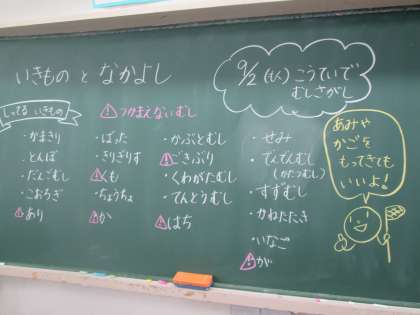 いきもの と なかよし
9/2(火)こうていで
むしさがし
しってる いきもの
⚠つかまえないむし
・かまきり
・とんぼ
・だんごむし
・こおろぎ
⚠あり
・ばった
・きりぎりす
⚠くも
・ちょうちょ
⚠か
・かぶとむし
⚠ごきぶり
・くわがたむし
・てんとうむし
⚠はち
・せみ
・でんでんむし
(かたつむり)
・すずむし
・かねたたき
・いなご
⚠が
あみや
かごを
もってきても
いいよ!